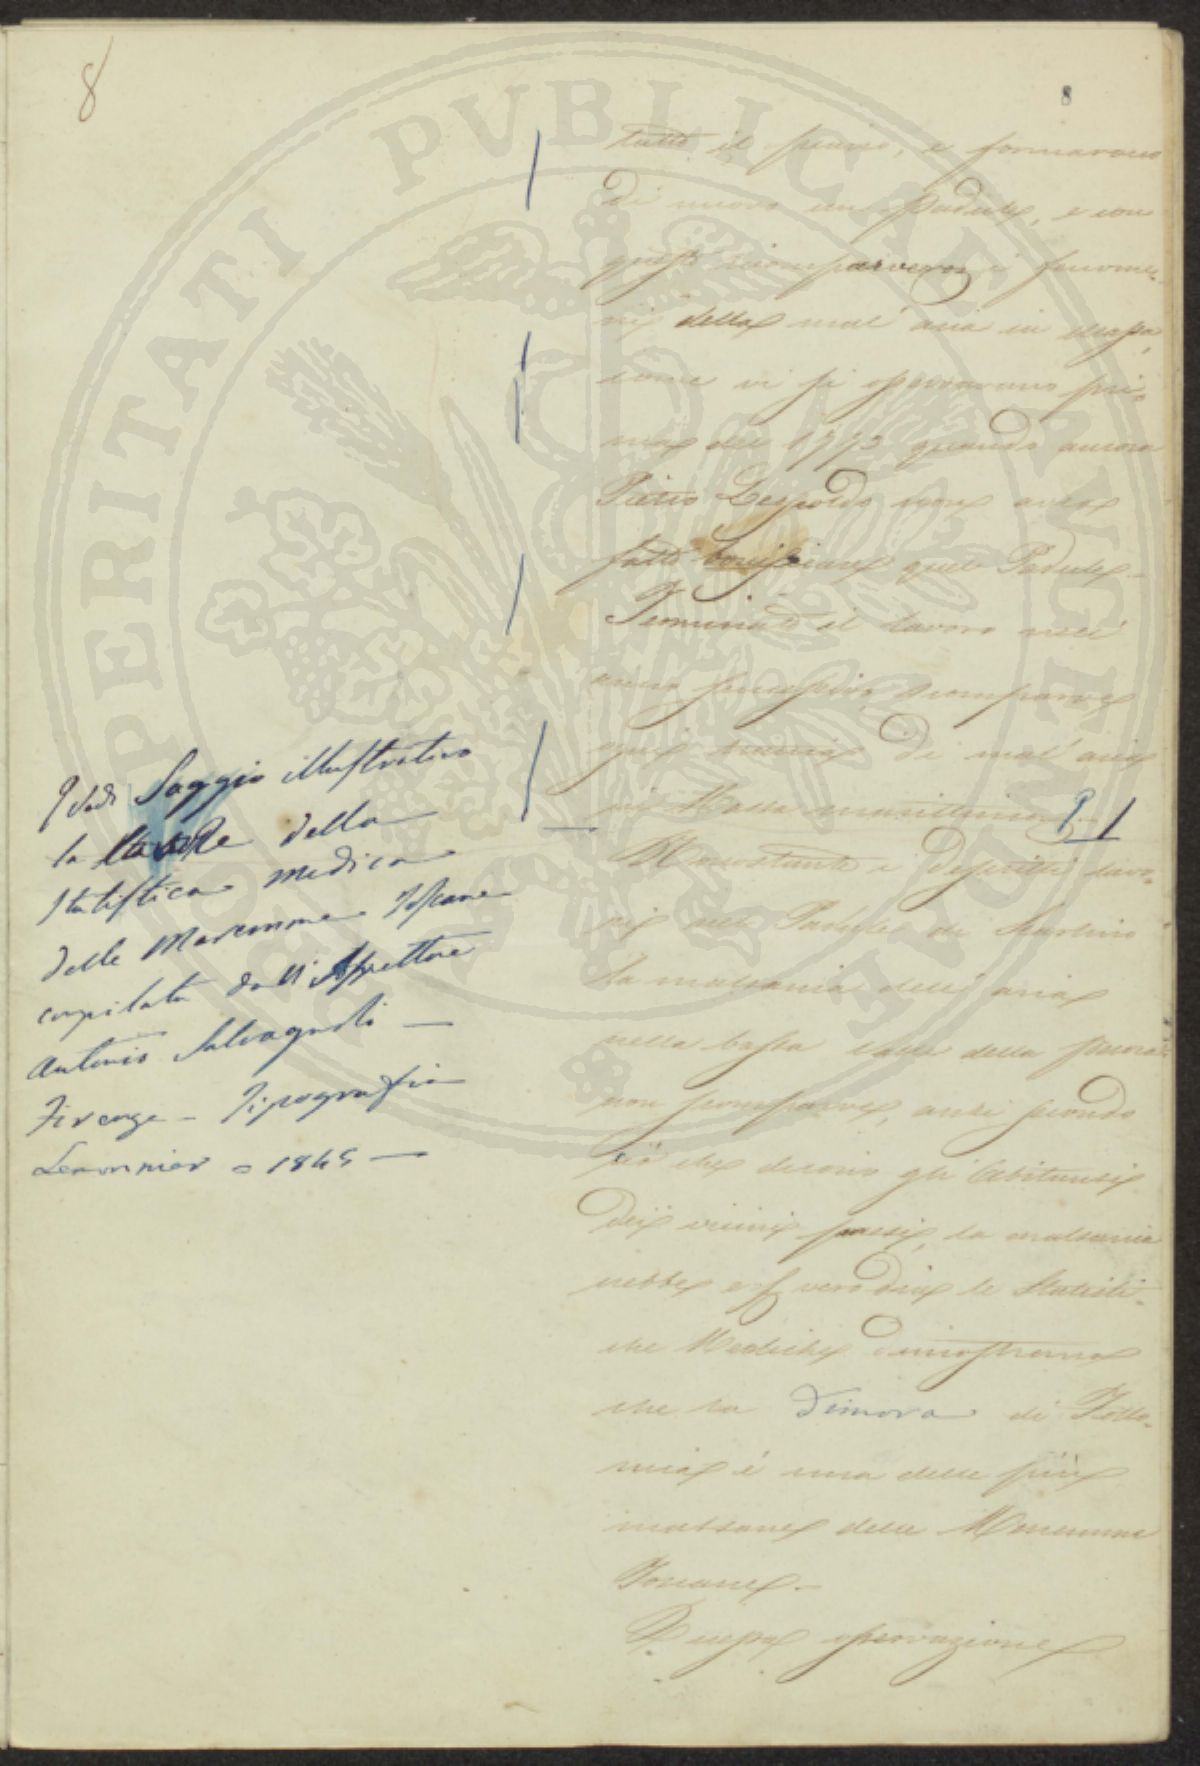 8
8
tutto il piano, e formarono
di nuovo un Padule, e con
questo ricomparvero i fenome-
ni della mal'aria in Massa,
come vi si osservarono pri-
ma del 1773 quando ancora
Pietro Leopoldo non aveva
fatto bonificare quel Padule-
Terminato il lavoro nell'
anno successivo, scomparve
ogni di mal'aria
in Massa marittima 1
Nonostante i descritti lavo-
ri nel Padule di Scarlino
la malsania dell'aria
nella bassa valle della Pecora
non scomparve, anzi secondo
ciò che dicono gli abitanti
dei vicini paesi, la malsania
crebbe e le Statisti-
che Mediche dimostrano
che la dimora di Follo-
nica è una delle più
malsane delle Maremme
Toscane-
Questa osservazione
Saggio illustrativo
la della
Statistica medica
delle Maremme Toscane
compilata dall'Ispettore
Antonio Salvagnoli —
Firenze - Tipografia
Lemonnier = 1845 —
PERITATI PVBLICAE